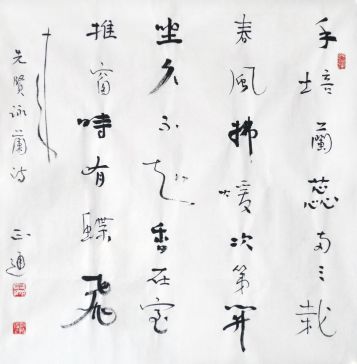 手培蘭蕊两三栽
春風拂暖次第開
坐久不知香在室
推窗時有蝶飛
来
先賢詠蘭詩
正通